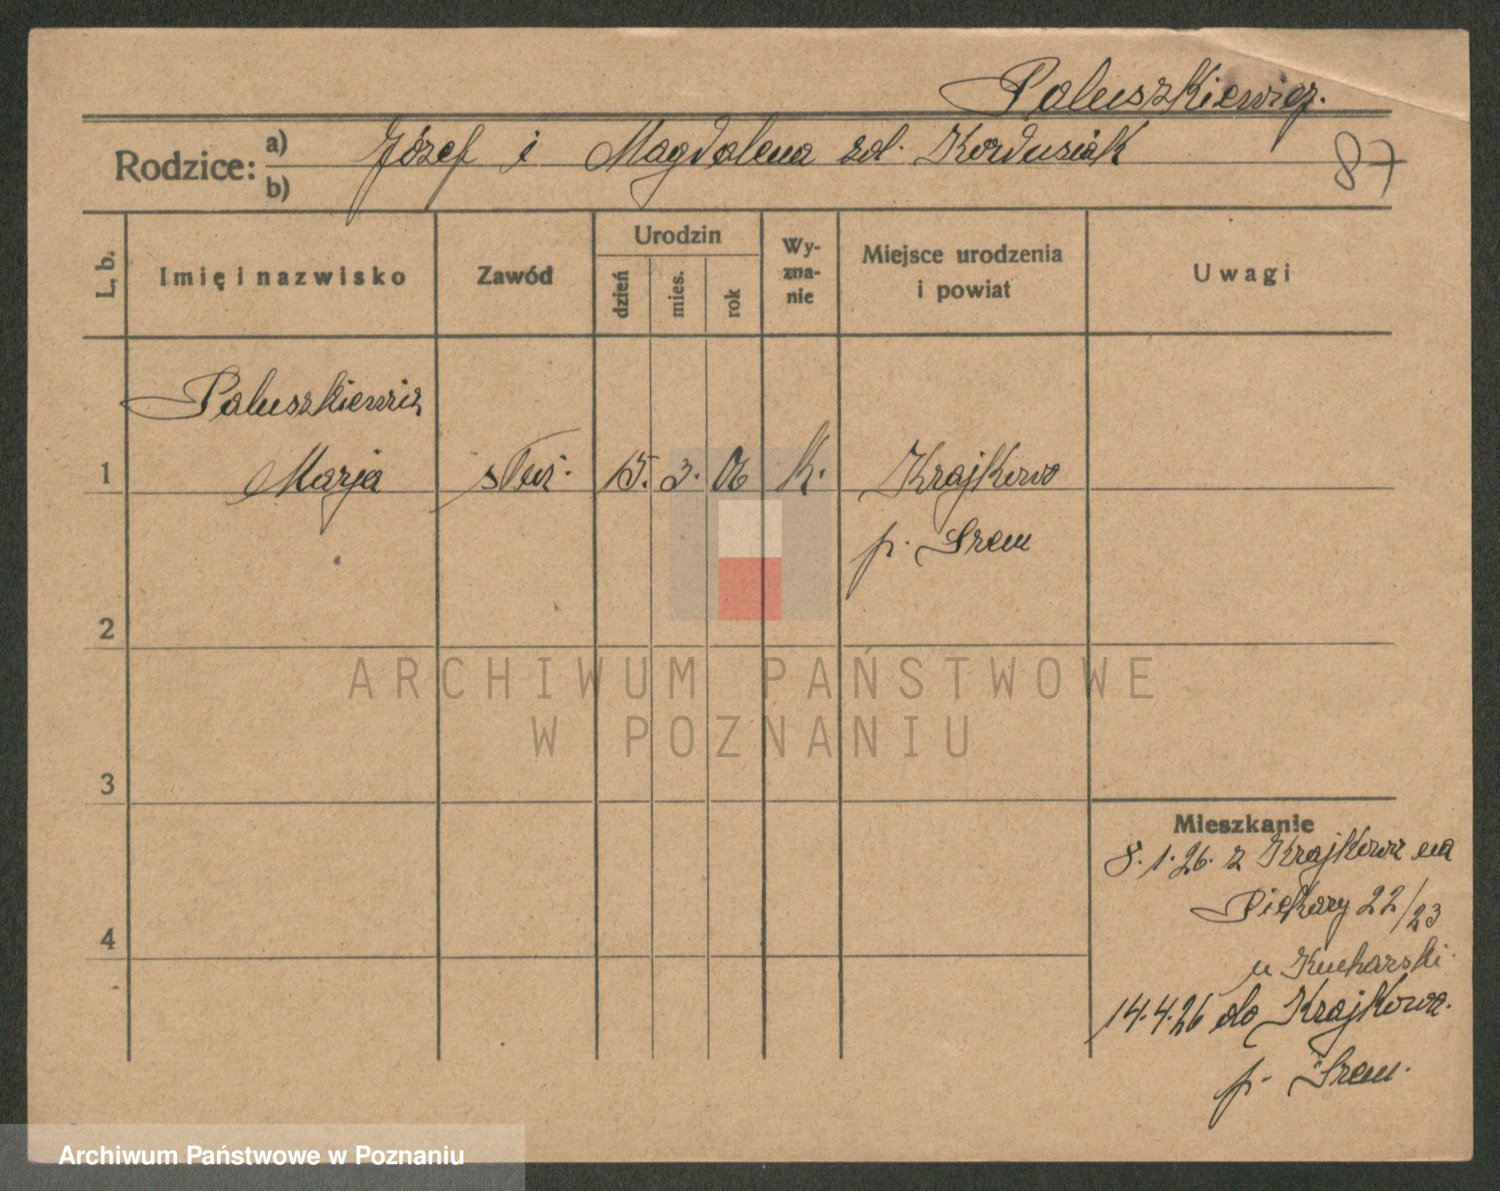 Paluszkiewicz.
Rodzice: a) Józef i Magdalena zd. Kordusiak
b)
87
L. b.
Imię i nazwisko
Zawód
Urodzin
dzień
mies.
rok
Wy-
zna-
nie
Miejsce urodzenia
i powiat
Uwagi
Paluszkiewicz
1 Marja służ. 15. 3. 06 k. Krajkowo
p. Śrem
2
ARCHIWUM PAŃSTWOWE
W POZNANIU
3
Mieszkanie
8.1.26. z Krajkowa na
Piekary 22/23
4
u Kucharski.
14.4.26 do Krajkowa.
p. Śrem.
Archiwum Państwowe w Poznaniu